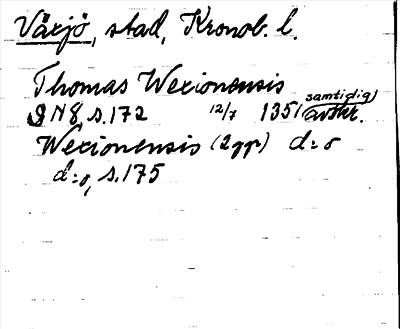 Växjö, stad, Kronob. l.
Thomas Wexionensis
s. 172 12/7 1351 samtidig avskr.
Wexionensis (2 ggr) d:o
d:o, s. 175